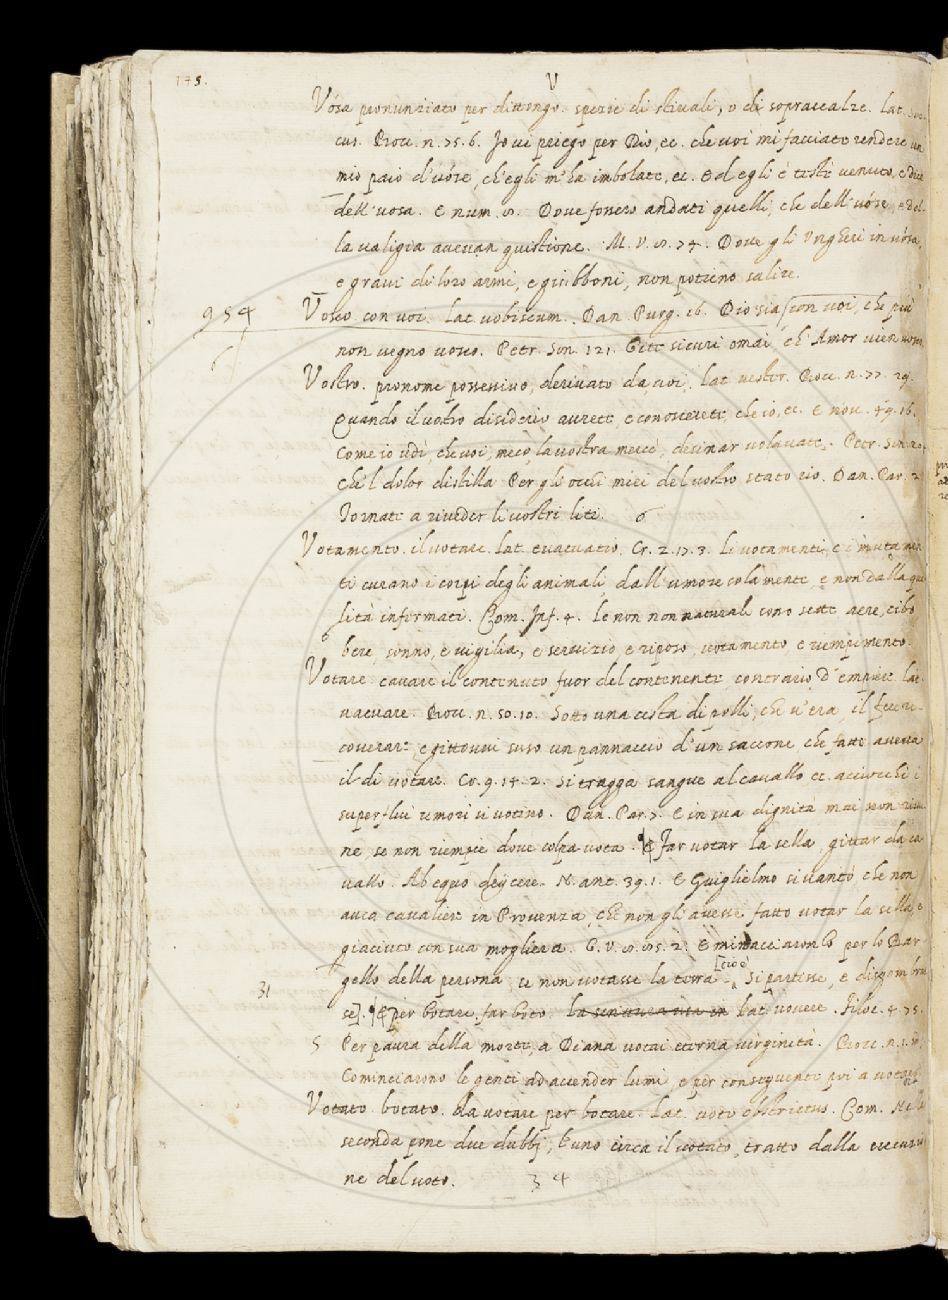 175.
V
Vósa pronunziato per dittongo. spezie di stivali, o di sopraccalze. lat.
cus. Bocc. n. 75. 6. Io vi priego per Dio, ec. che voi mi facciate rendere un
mio paio d'uose, ch'egli m'ha imbolate, ec. Ed egli è testè venuto, e dice
dell'uosa. E num. 8. Dove sono andati quelli, che dell'uose, e del
la valigia avevan quistione. M. V. 8. 74. Dove gli Ungheri in uosa,
e gravi di loro armi, e giubboni, non potieno salire.
954
Vosco con voi. lat. vobiscum. Dan. Purg. 16. Dio sia con voi, che più
6
non vegno vosco. Petr. Son. 121. Gite sicuri omai, ch'Amor vien vosco
Vostro. pronome possessivo, derivato da voi. lat. vester. Bocc. n. 77. 29.
Quando il vostro disiderio avrete, e conoscerete, che io, ec. E nov. 49. 16.
Come io udì, che voi, meco, la vostra mercè, desinar volavate. Petr. Son.
Ch'l dolor distilla Per gli occhi miei del vostro stato rio. Dan. Par. 2.
Tornate a riveder li vostri liti. 6
Votamento. il votare. lat. evacuatio. Cr. 2. 17. 3. Li votamenti, e i mutamen
ti curano i corpi degli animali, dall'umore solamente, e non dalla qua
lità informati. Com. Inf. 4. le non non naturali sono sette aere, cibo
6
bere, sonno, e vigilia, e servizio, e riposo, votamento, e riempimento.
Votare. cavare il contenuto fuor del contenente, contrario d'empiere. lat.
vacuare. Bocc. n. 50. 10. Sotto una cesta di polli, che v'era, il fece ri-
coverare: e gittovvi suso un pannaccio d'un saccone, che fatto aveva
il dì votare. Cr. 9. 14. 2. Si tragga sangue al cavallo ec. acciocchè i
superflui umori si votino. Dan. Par. 7. E in sua dignità mai non
ne, se non riempie dove colpa vota. ¶ E Far votar la sella, gittar da ca
vallo. Ab equo deiicere. N. ant. 39. 1. E Guiglielmo si vantò, che non
avea cavaliere in Provenza, che non gli avesse fatto votar la sella, e
giaciuto con sua mogliera. G. V. 8. 2. E minacciaronlo per lo Bar-
[cioè
gello della persona, se non votasse la terra, si partisse, e disgombras
31
se]. ¶ E per botare, far boto. lat. vovere. Filoc. 4. 75.
5
Per paura della morte, a Diana votai eterna virginità. Bocc. n. 1. 8.
Cominciarono le genti ad accender lumi, e per conseguente poi a votarsi
Votato. botato. da votare per botare. lat. voto obstrictus. Com.
seconda pone due dubbj, l'uno circa il votato, tratto dalla
ne del voto. 34